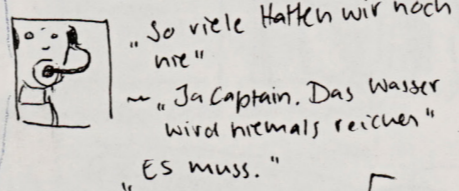 „So viele Hatten wir noch
nie"
~ „Ja Captain. Das Wasser
wird niemals reichen"
„Es muss."